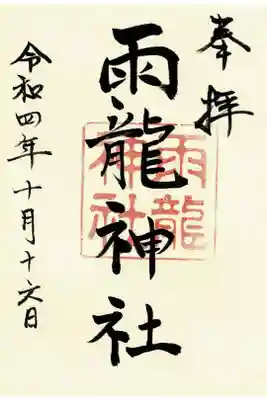 奉拝
雨龍神社
雨龍神社
令和四年十月十六日